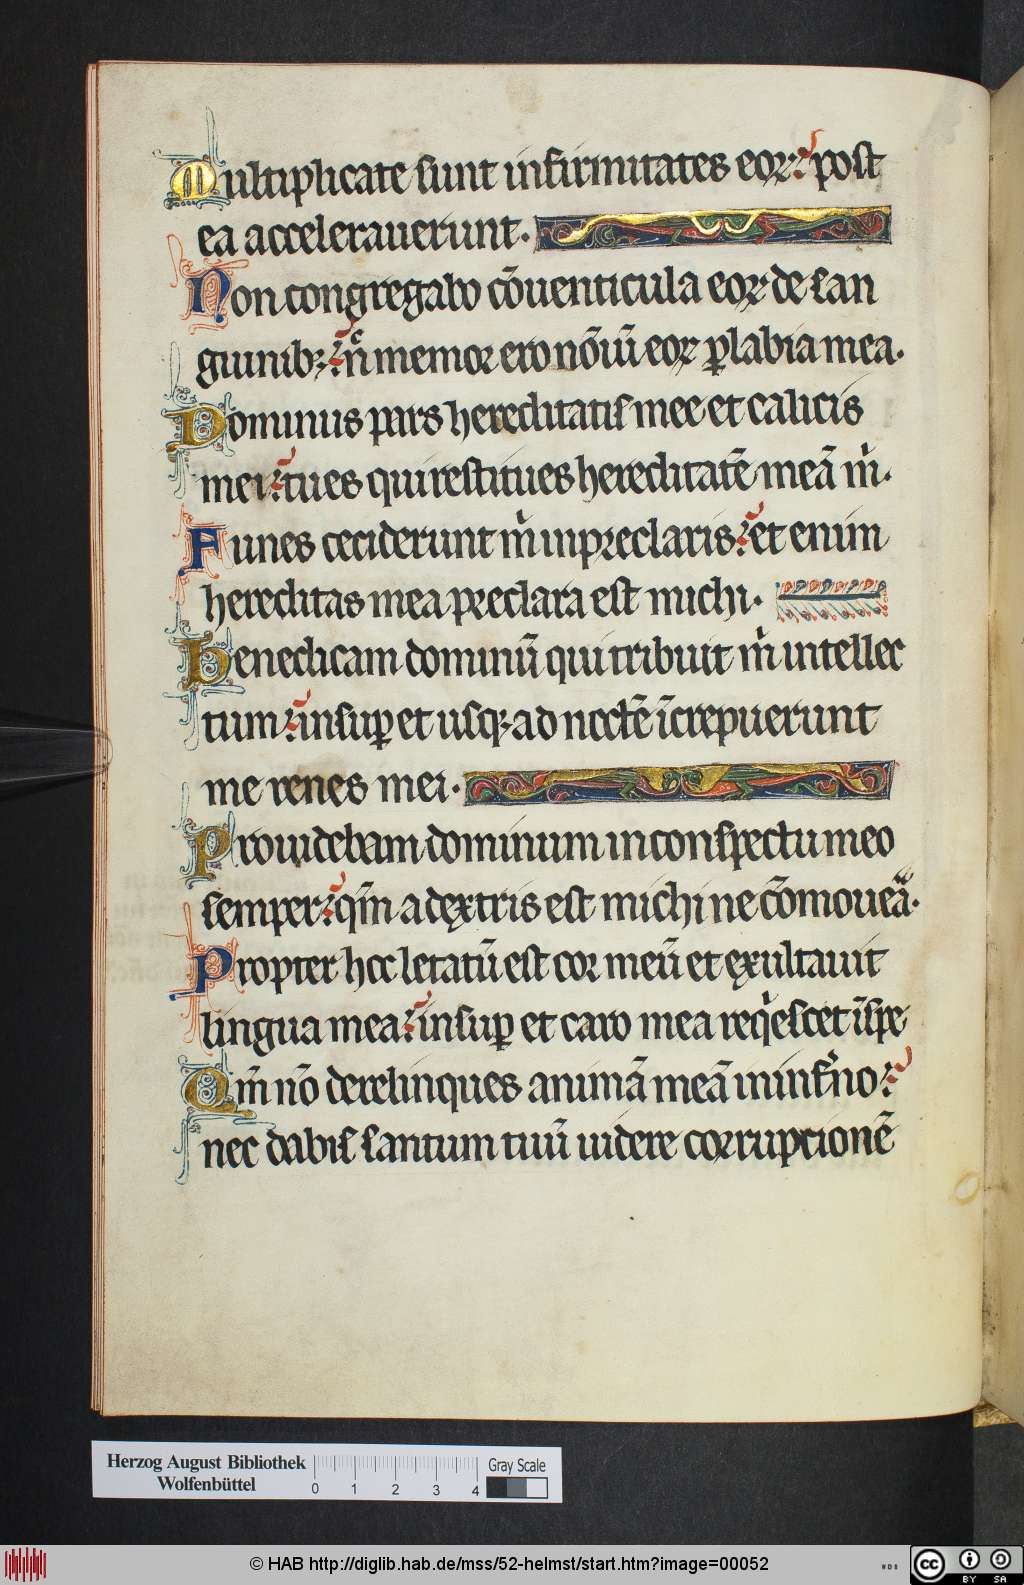 Multiplicate sunt infirmitates eoꝝ: post
ea accelerauerunt.
Non congregabo cōuenticula eoꝝ de san
guinibꝫ: nͨ memor ero nōiū eoꝝ ꝑ labia mea.
Dominus pars hereditatis mee et calicis
mei: tu es qui restitues hereditatē meā m̍.
Funes ceciderunt m̍ in preclaris: et enim
hereditas mea preclara est michi.
Benedicam dominū qui tribuit m̍ intellec
tum: insuꝑ et usqꝫ ad noctē īcrepuerunt
me renes mei.
Prouidebam dominum in conspectu meo
semper: qm̄ a dextris est michi ne cōmoueā.
Propter hoc letatū est cor meū et exultauit
lingua mea: insuꝑ et caro mea reqͥescet ī spe
Qm̄ nō derelinques animā meā in inf̍no:
nec dabis santum tuū uidere corruptionē
Herzog August Bibliothek
Wolfenbüttel
0 1 2 3 4
Gray Scale
© HAB http://diglib.hab.de/mss/52-helmst/start.htm?image=00052
cc BY SA